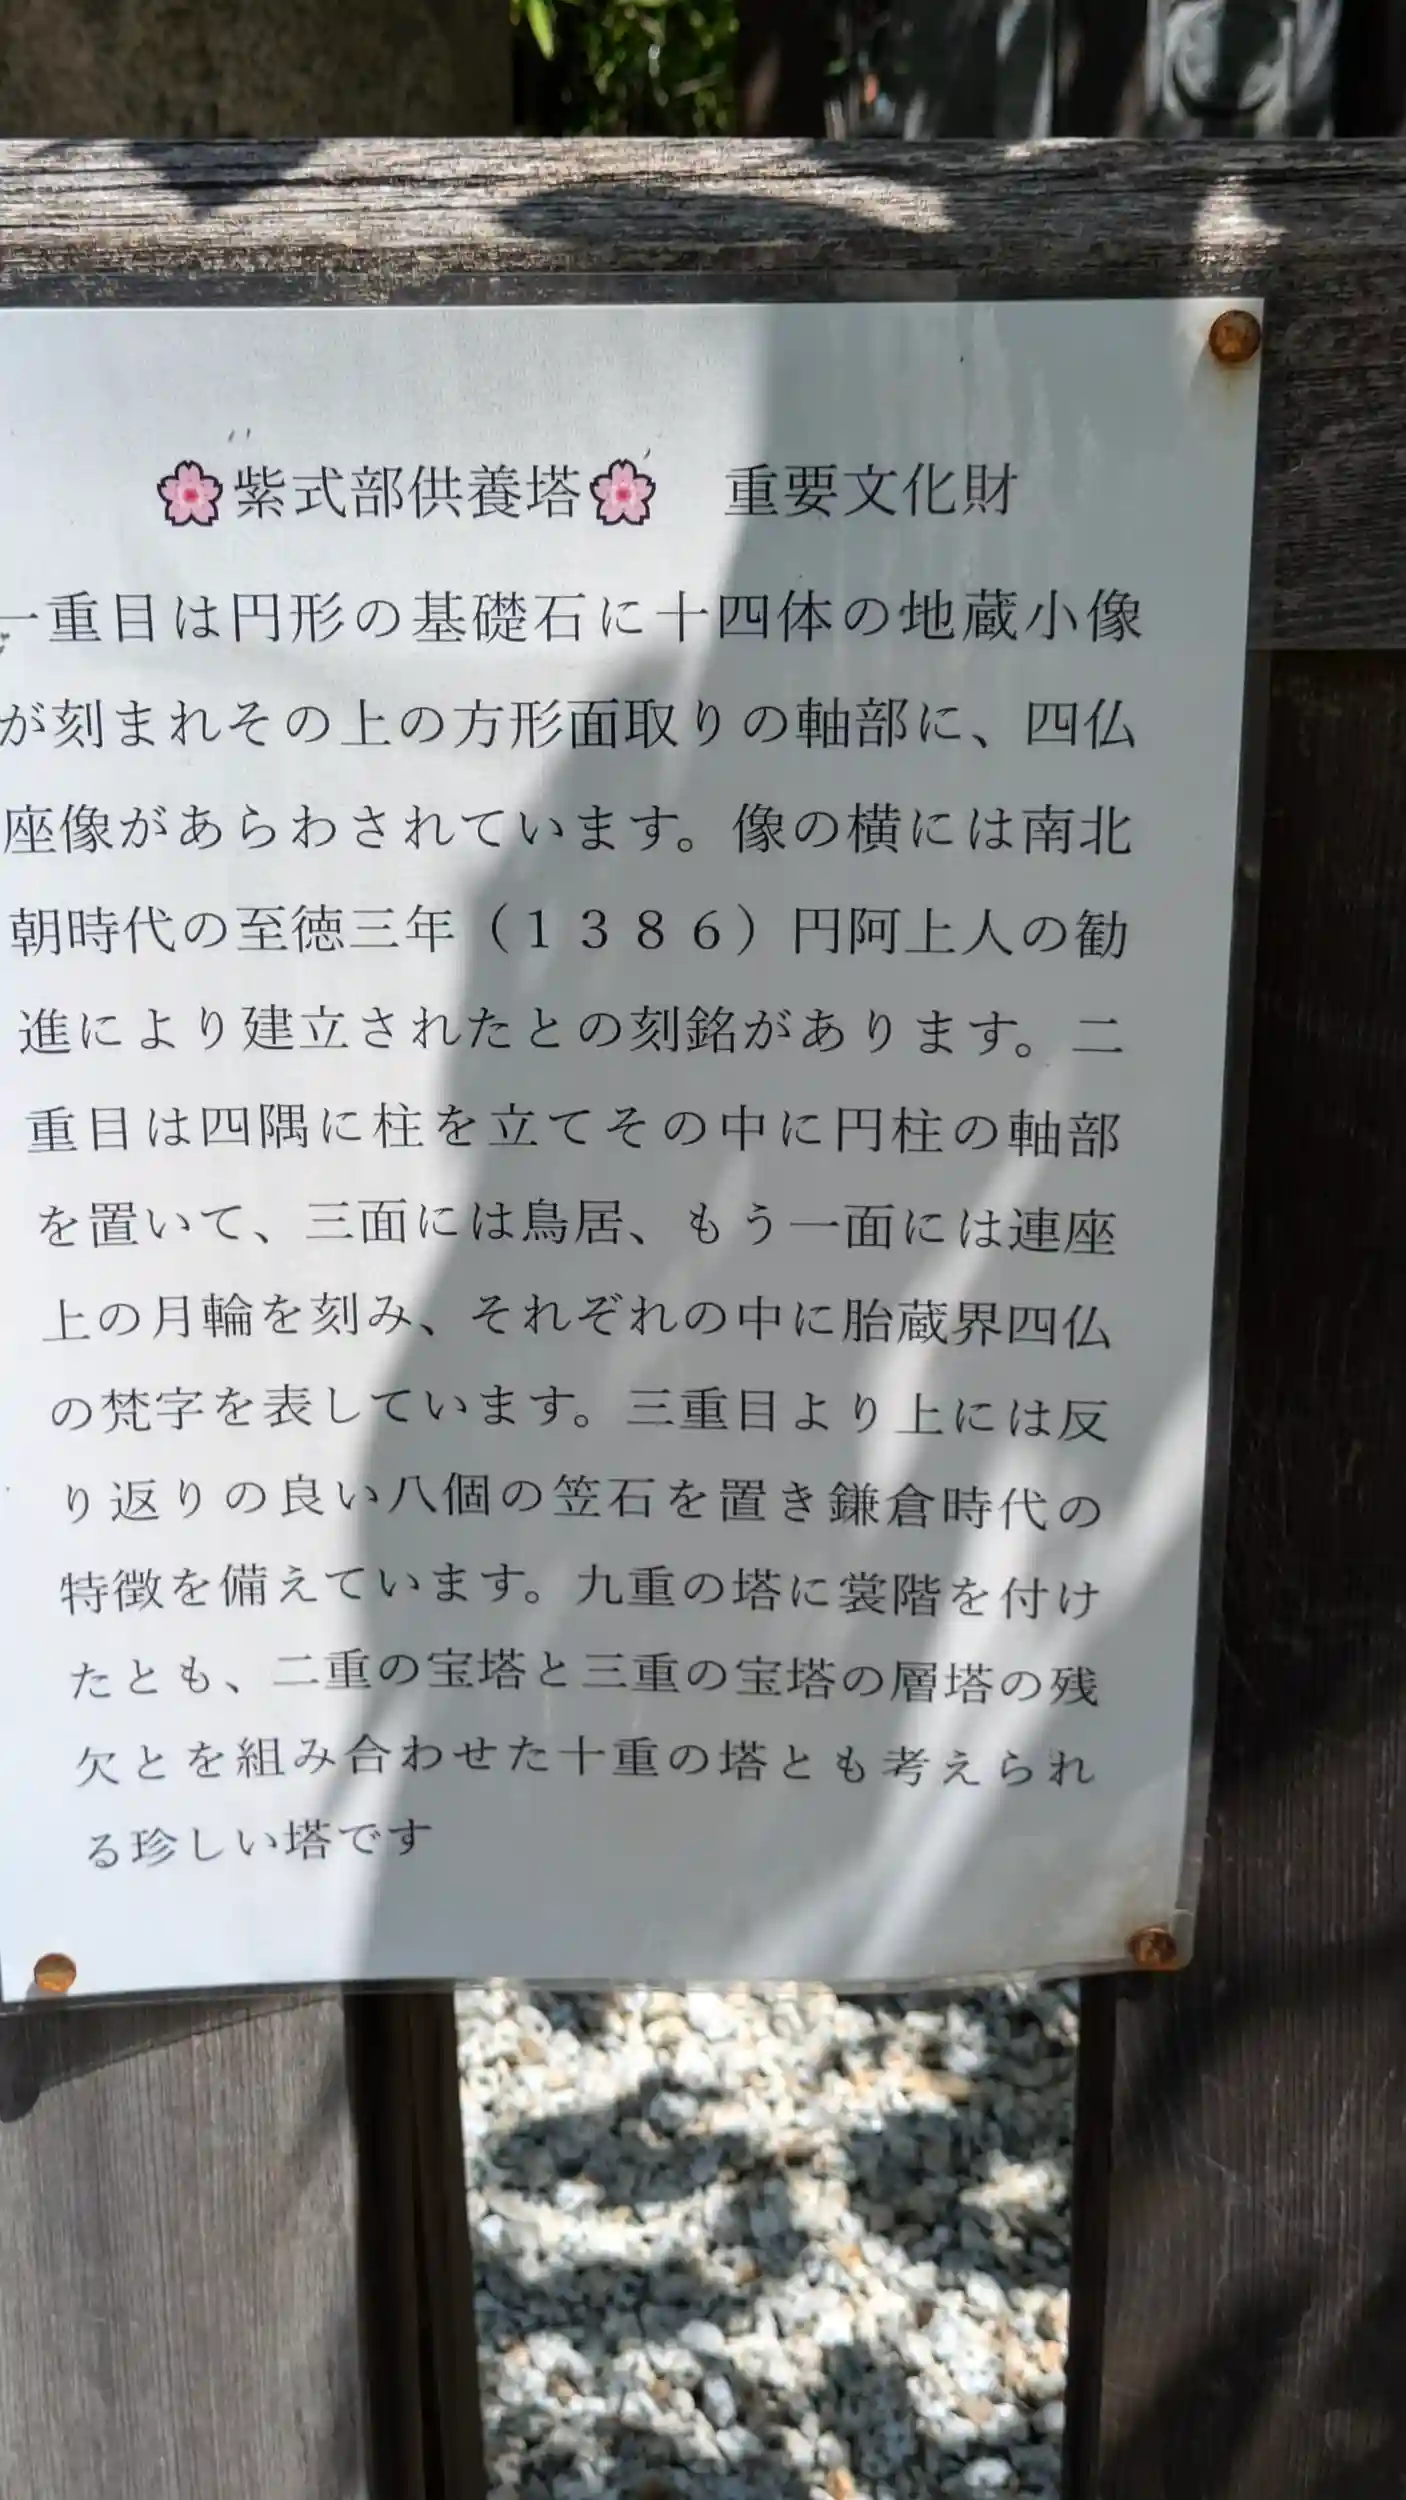 🌸紫式部供養塔🌸　重要文化財
一重目は円形の基礎石に十四体の地蔵小像
が刻まれその上の方形面取りの軸部に、四仏
座像があらわされています。像の横には南北
朝時代の至徳三年（１３８６）円阿上人の勧
進により建立されたとの刻銘があります。二
重目は四隅に柱を立てその中に円柱の軸部
を置いて、三面には鳥居、もう一面には連座
上の月輪を刻み、それぞれの中に胎蔵界四仏
の梵字を表しています。三重目より上には反
り返りの良い八個の笠石を置き鎌倉時代の
特徴を備えています。九重の塔に裳階を付け
たとも、二重の宝塔と三重の宝塔の層塔の残
欠とを組み合わせた十重の塔とも考えられ
る珍しい塔です